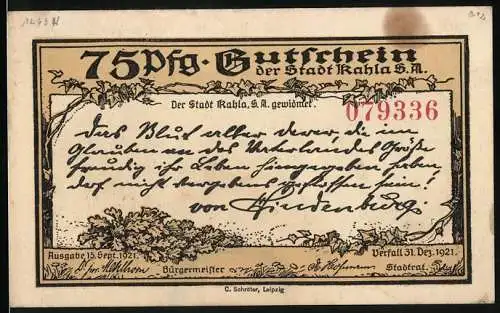 75 Pfg. Gutschein
der Stadt Kahla S.A.
Der Stadt Kahla, S.A. gewidmet.
079336
Das Blut aller derer, die im
Glauben an des Vaterlandes Größe
freudig ihr Leben hingegeben haben,
darf nicht vergebens geflossen sein!
von Hindenburg.
Ausgabe 15. Sept. 1921.
Verfall 31. Dez. 1921.
Bürgermeister
Stadtrat.
C. Schröter, Leipzig